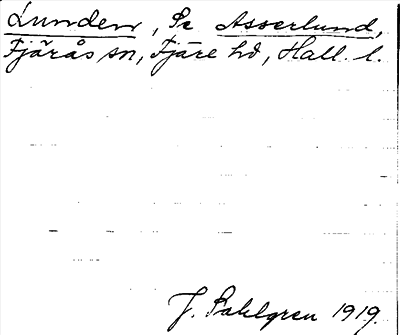 Lunden, Se Asserlund,
Fjärås sn, Fjäre hd, Hall. l.
J. Sahlgren 1919.